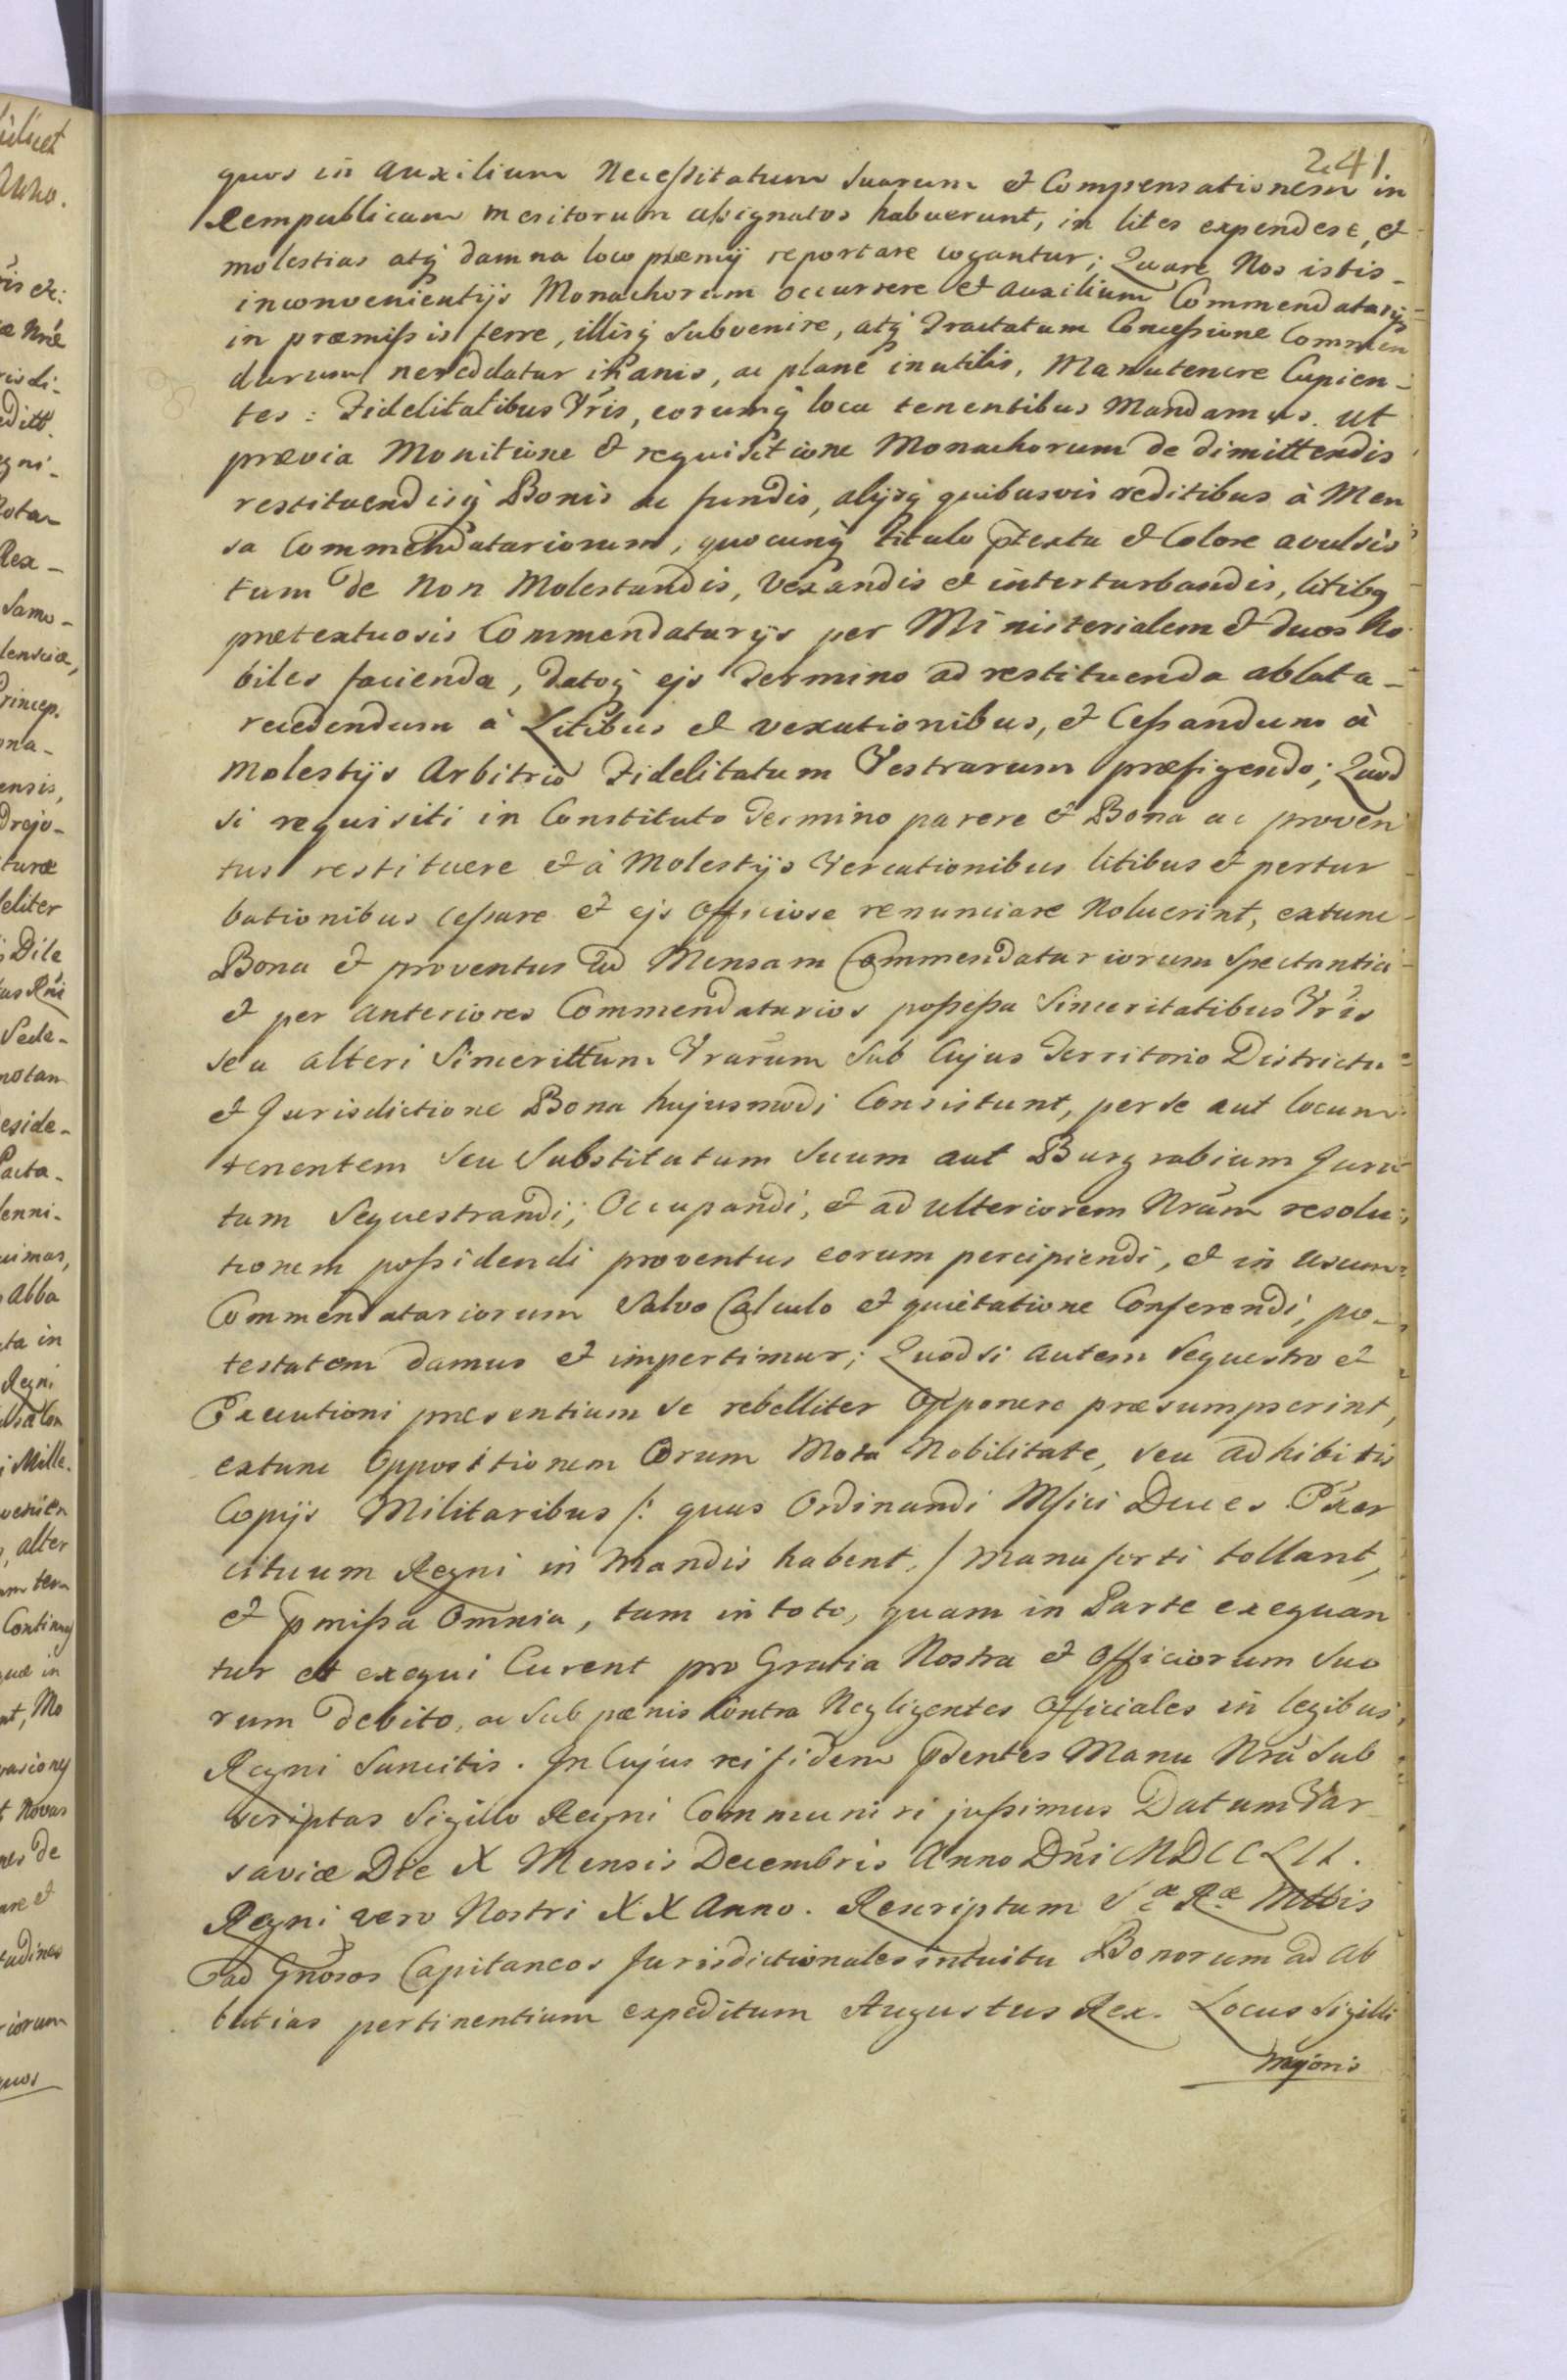 241
quos in auxilium Necessitatum suarum et Compensationem in
Rempublicam meritorum assignatos habuerunt, in lites expendere, et
molestias atq damna loco præmij reportare cogantur; Quare Nos istis
inconvenientijs Monachorum occurrere et auxilium Commendatarijs
in præmissis ferre, illisq subvenire, atq Tractatum Concessione Commen
darum ne reddatur inanis, ac plane inutilis, Manutenere Cupien-
tes: Fidelitatibus Vris, eorumq loca tenentibus Mandamus. ut
prævia Monitione et requisitione Monachorum de dimittendis
restituendisq Bonis ac fundis, alijsq quibusvis reditibus à Men
sa Commendatariorum, quocunq titulo ptextu et Colore avulsis
tum de Non Molestandis, Vexandis et inturbandis, litibq
prætextuosis Commendatarijs per Ministerialem et duos No
biles facienda, datoq ejs Termino ad restituenda ablata-
recedendum à Litibus et vexationibus, et Cessandum à
Molestijs Arbitrio Fidelitatum Vestrarum præfigendo; Quod
si requisiti in Constituto Termino parere et Bona ac proven
tus restituere et à Molestijs Vexationibus litibus et pertur
bationibus Cessare et ejs officiose renunciare Noluerint, extunc
Bona et proventus ad Mensam Commendatariorum spectantia
et per anteriores Commendatarios possessa Sinceritatibus Vris
seu alteri Sincerittum Vrarum sub Cujus Territorio Districtu
et Jurisdictione Bona hujusmodi Consistunt, per se aut locum
tenentem seu Substitutum suum aut Burgrabium Jura
tum Sequestrandi, Occupandi, et ad ulteriorem Nram resolu
tionem possidendi proventus eorum percipiendi, et in usum
Commendatariorum Salvo Calculo et quietatione Conferendi, po-
testatem damus et impertimur; Quodsi autem Sequestro et
Executioni præsentium se rebelliter Opponere præsumpserint,
extunc Oppositionem Eorum Mota Nobilitate, seu adhibitis
Copijs Militaribus /: quas Ordinandi Mssici Duces Exer
cituum Regni in Mandis habent. / manu forti tollant,
et pmissa Omnia, tam in toto, quam in Parte exequan
tur et exequi Curent pro Gratia Nostra et Officiorum suo
rum debito, ac sub pænis Contra Negligentes Officiales in legibus
Regni Sancitis. In Cujus rei fidem pdentes Manu Nra sub
scriptas Sigillo Regni Communiri jussimus Datum Var
saviæ Die X Mensis Decembris Anno Dni MDCCLII.
Regni vero Nostri XX Anno. Rescriptum Sæ Ræ Mttis
ad Gnosos Capitaneos Jurisdictionales intuitu Bonorum ad Ab
batias pertinentium expeditum Augustus Rex. Locus Sigilli
Majoris